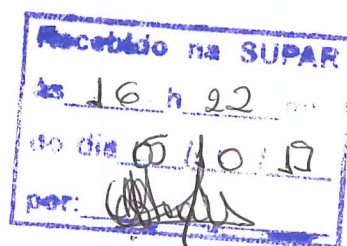 Recebido na SUPAR
às 16 h 22
do dia / 10 / 19
por: